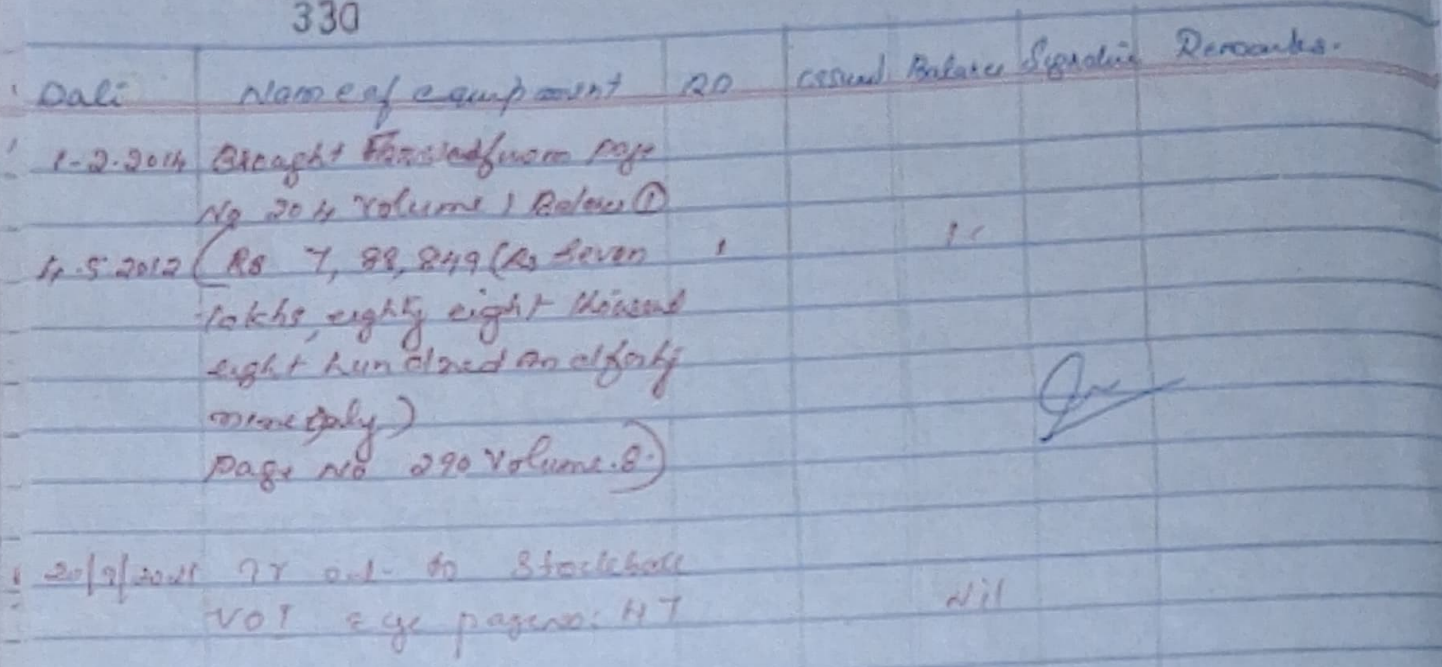 330
Date Name of equipment RD issued Balance Signature Remarks.
1-2-2014 Brought Forwarded from page
No 204 Volume 1 Balance ①
4.5 2012 (RS 7,88,849 (Rs Seven 1 1
lakhs eighty eight thousand
eight hundred and forty
nine only)
page No 290 Volume.8.)
out to Stock
Vol page no: 47 Nil